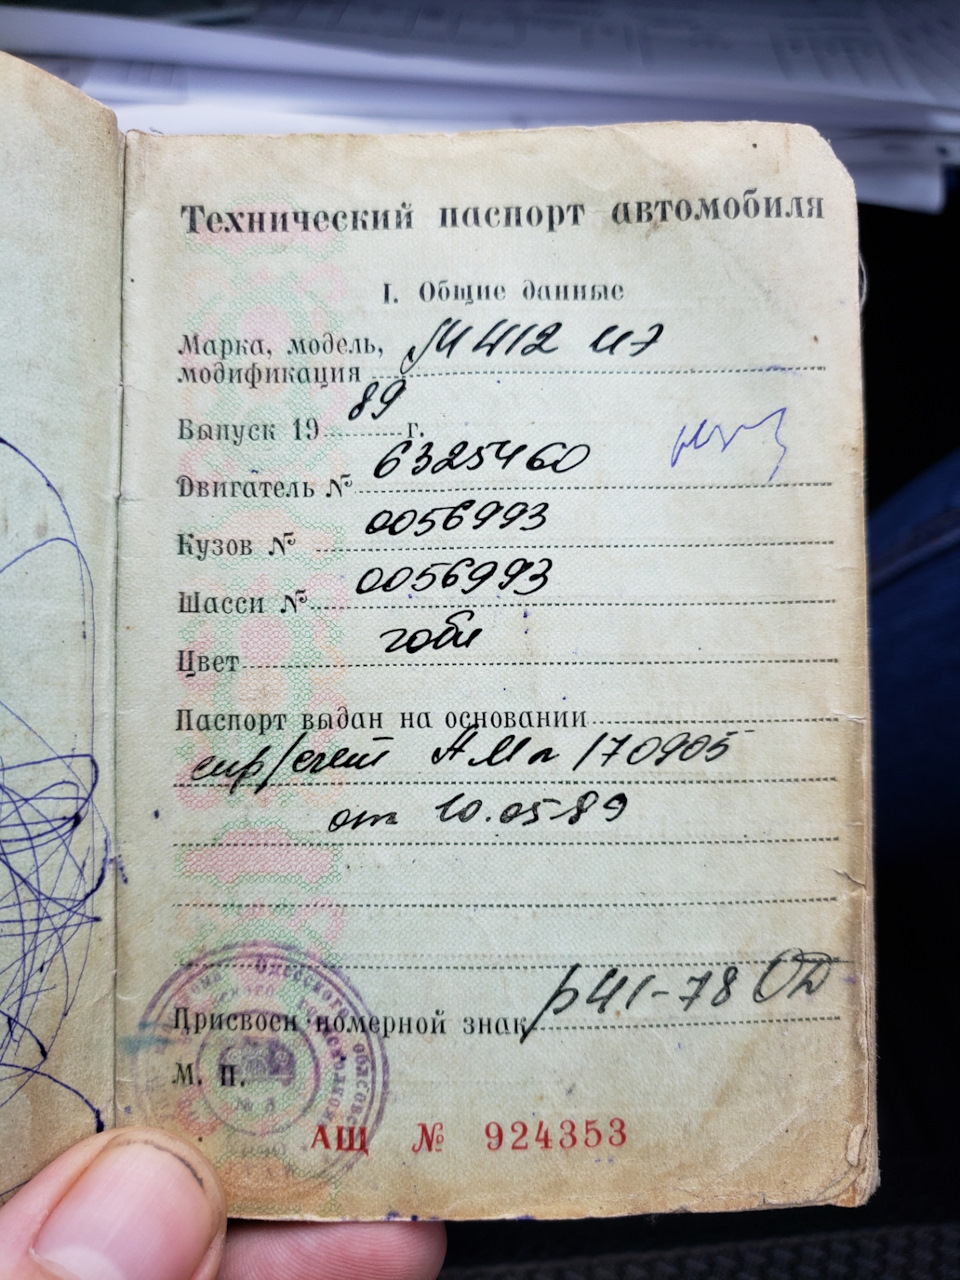 Технический паспорт автомобиля
I. Общие данные
Марка, модель, М 412 ИЭ
модификация
Выпуск 1989 г.
Двигатель № 6325460
Кузов № 0056993
Шасси № 0056993
Цвет
Паспорт выдан на основании
170905
от 10.05.89
Присвоен номерной знак р41-78 ОД
М. П.
АЩ № 924353